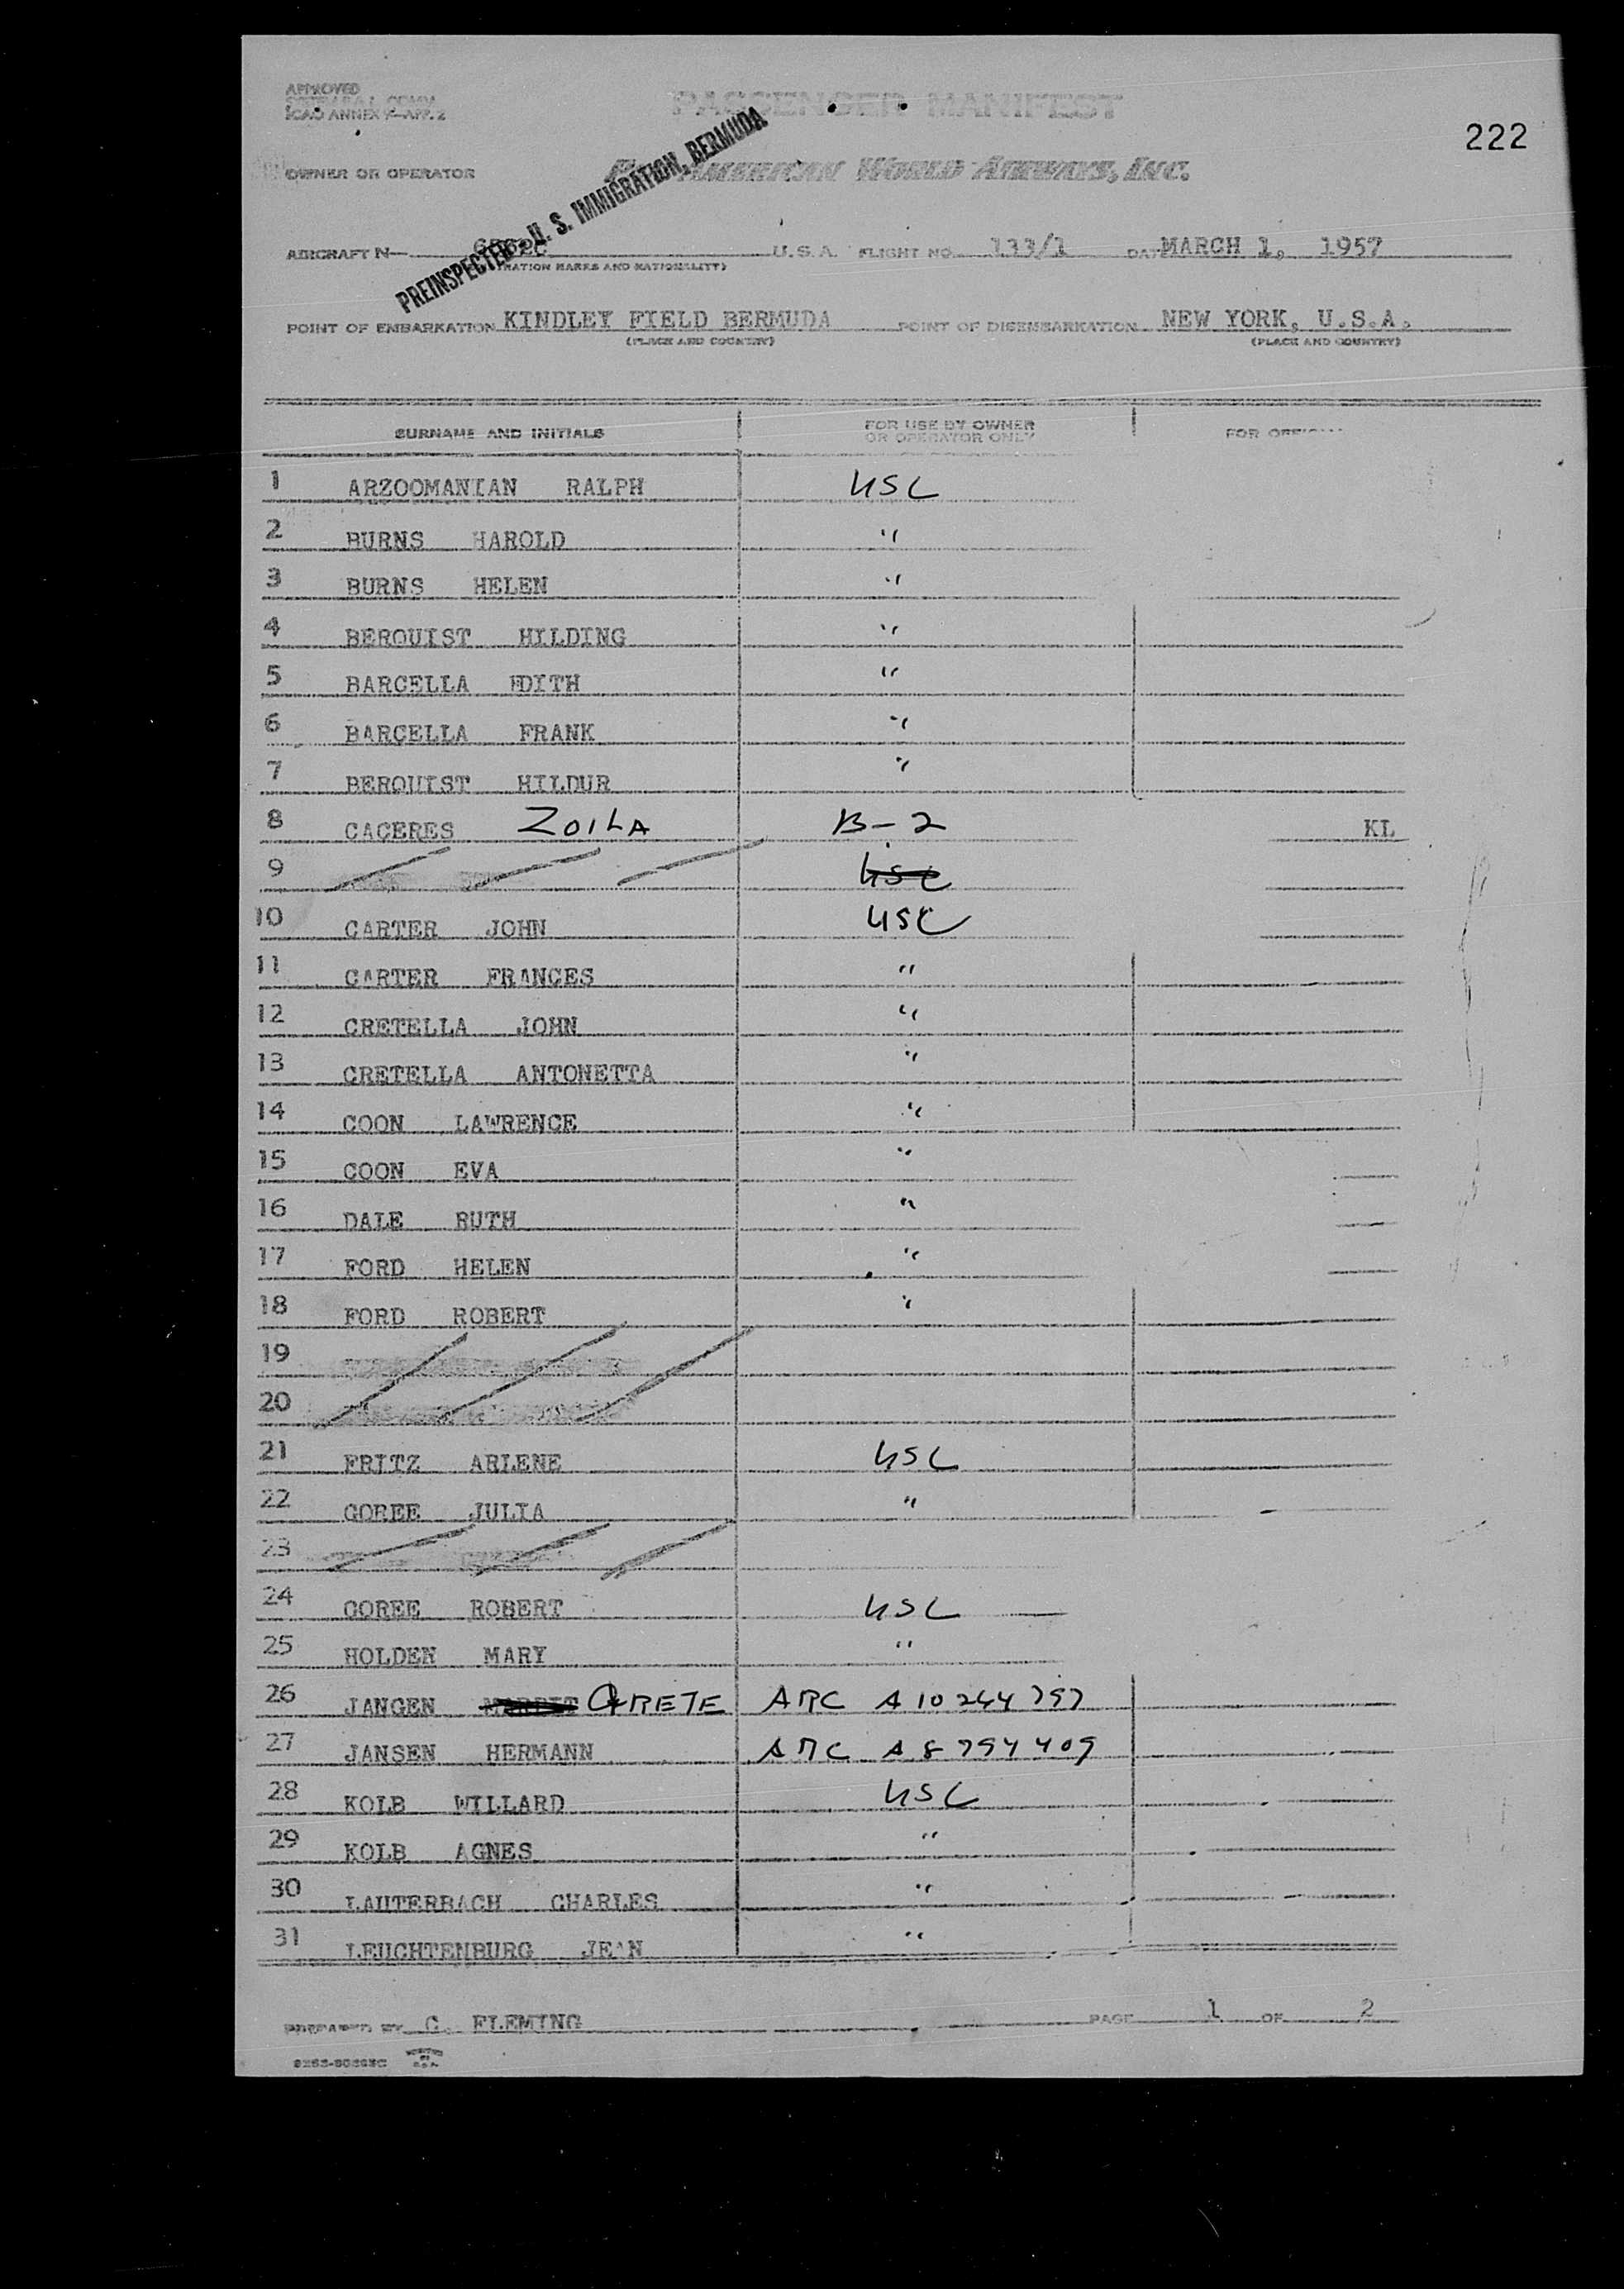 APPROVED
ICAO ANNEX 9—APP. 2
PASSENGER MANIFEST
222
OWNER OR OPERATOR
AMERICAN WORLD AIRWAYS, INC.
PREINSPECTED U. S. IMMIGRATION, BERMUDA
AIRCRAFT N— U.S.A. FLIGHT NO. 133/1 DATE MARCH 1, 1957
MARKS AND NATIONALITY)
POINT OF EMBARKATION KINDLEY FIELD BERMUDA POINT OF DISEMBARKATION NEW YORK, U.S.A.
(PLACE AND COUNTRY) (PLACE AND COUNTRY)
SURNAME AND INITIALS FOR USE BY OWNER OR OPERATOR ONLY FOR
1 ARZOOMANIAN RALPH USC
2 BURNS HAROLD "
3 BURNS HELEN "
4 BERQUIST HILDING "
5 BARCELLA EDITH "
6 BARCELLA FRANK "
7 BERQUIST HILDUR "
8 CACERES ZOILA B-2 KL
9 USC
10 CARTER JOHN USC
11 CARTER FRANCES "
12 CRETELLA JOHN "
13 CRETELLA ANTONETTA "
14 COON LAWRENCE "
15 COON EVA "
16 DALE RUTH "
17 FORD HELEN "
18 FORD ROBERT "
19
20
21 FRITZ ARLENE USC
22 GOREE JULIA "
23
24 GOREE ROBERT USC
25 HOLDEN MARY "
26 JANGEN GRETE ARC A10244797
27 JANSEN HERMANN ARC A8794409
28 KOLB WILLARD USC
29 KOLB AGNES "
30 LAUTERBACH CHARLES "
31 LEUCHTENBURG JEAN "
PREPARED BY C. FLEMING PAGE 1 OF 2